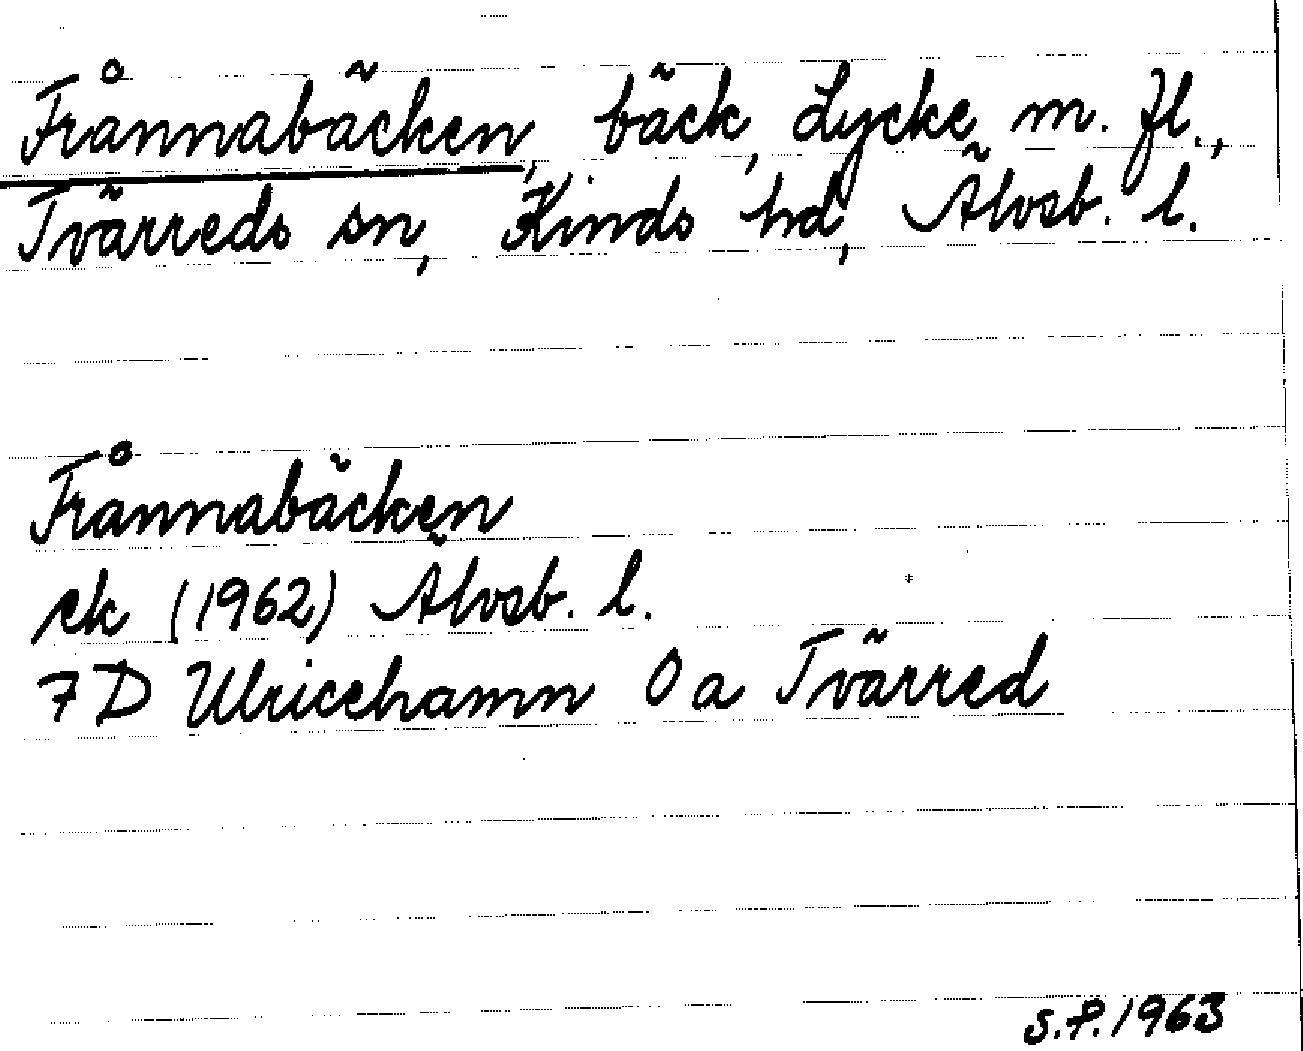 Frånnabäcken, bäck, Lycke m. fl.,
Tvärreds sn, Kinds hd, Älvsb. l.
Frånnabäcken
ek (1962) Älvsb. l.
7 D Ulricehamn 0 a Tvärred
S.P. 1963